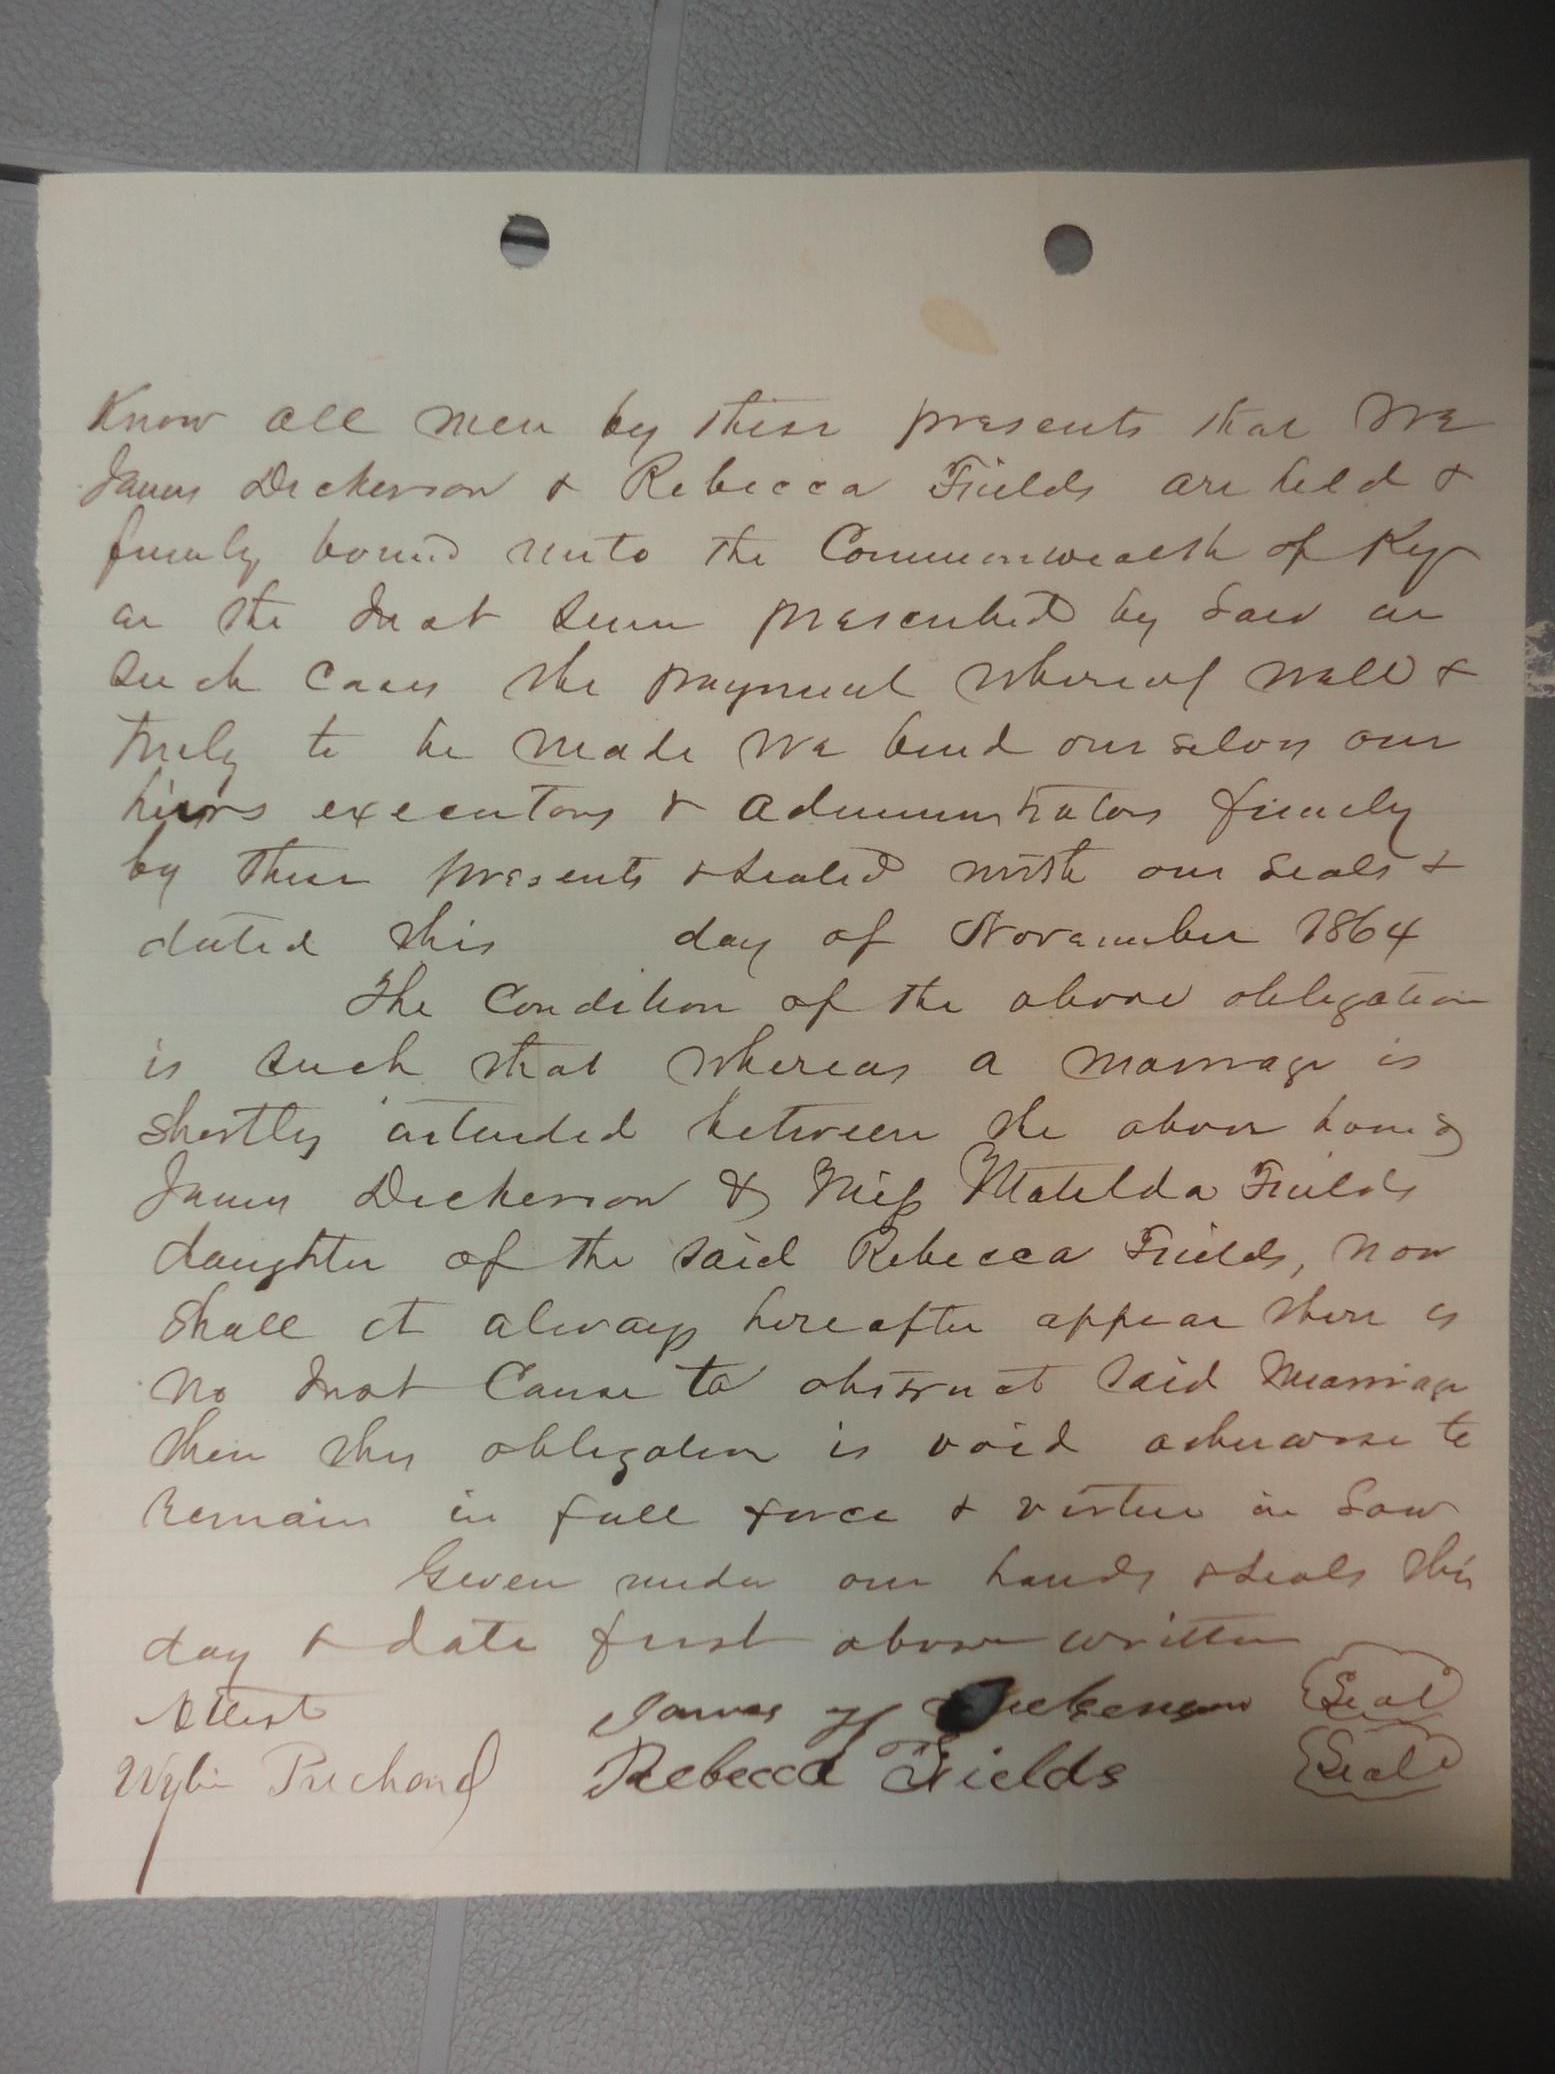 Know all men by these presents that We
James Dickerson & Rebecca Fields are held &
firmly bound unto the Commonwealth of Ky
in the Just sum prescribed by Law in
such cases the payment whereof well &
truly to be made we bind ourselves our
heirs executors & administrators firmly
by these presents & sealed with our seals &
dated this day of November 1864
The Condition of the above obligation
is such that whereas a marriage is
shortly intended between the above bound
James Dickerson & Miss Matilda Fields
daughter of the said Rebecca Fields, now
shall it always hereafter appear there is
no Just Cause to obstruct said marriage
then this obligation is void otherwise to
remain in full force & virtue in Law
Given under our hands & seals this
day & date first above written
Attest James Dickenson Seal
Wylie Prichard Rebecca Fields Seal